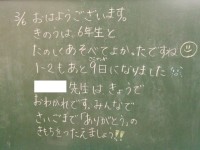 3/6 おはようございます。
きのうは、6年生と
たのしくあそべてよかったですね
1-2もあと9日になりました
先生は きょうで
おわかれです。みんなで
さいごまで「ありがとう」の
きもちをつたえましょう!!